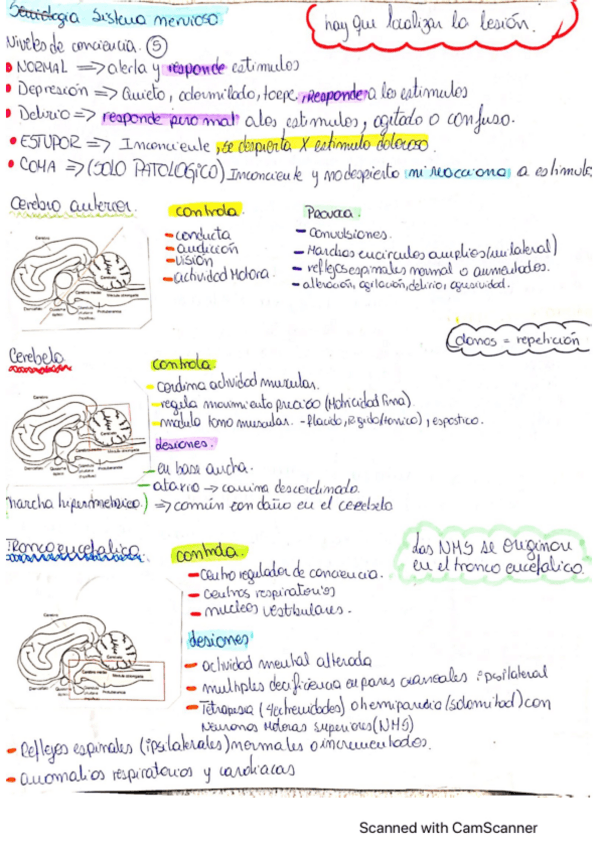 Semiología Sistema nervioso
hay que localizar la lesión.
Niveles de conciencia. 5
NORMAL => alerta y responde estimulos
Depresión => Quieto, adormilado, torpe, Responde a los estimulos
Delirio => responde pero mal a los estimulos, agitado o confuso.
ESTUPOR => Inconciente, se despierta x estimulo doloroso.
COMA => (SOLO PATOLOGICO) Inconciente y no despierto ni reacciona a estimulo
Cerebro anterior.
controla.
- conducta
- audición
- Visión
- actividad Motora.
Provoca.
- Convulsiones.
- Marchas en circulos amplios (unilateral)
- reflejos espinales normal o aumentados.
- alteración, agitación, delirio, agresividad.
donos = repetición
Cerebelo
controla.
- Cordina actividad muscular.
- regula movimiento preciso (Motricidad fina)
- modula tono muscular. - flacido, rigido (tonico), espastico.
lesiones.
- en base ancha.
- ataxia -> camina descordinado.
marcha hipermetrica.) => común con daño en el cerebelo
Tronco encefalico
controla.
- Centro regulador de conciencia.
- centros respiratorios
- nucleos vestibulares.
Las NMS se originan
en el tronco encefalico.
lesiones
- actividad mental alterada
- multiples deficiencia en pares craneales ipsilateral
- Tetraparesia (4 extremidades) o hemiparesia (solo mitad) con
Neuronas Motoras Superiores (NMS)
- Reflejos espinales (ipsilaterales) normales o incrementados.
- anomalias respiratorias y cardiacas
Scanned with CamScanner